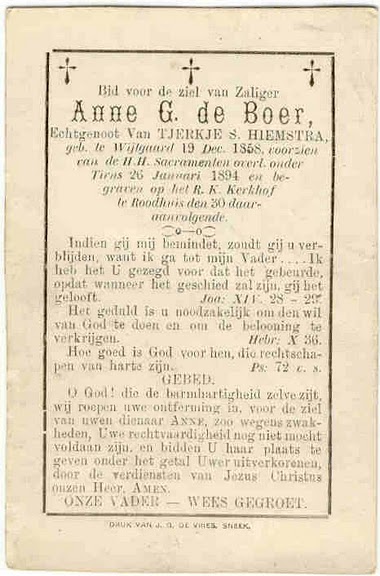 Bid voor de ziel van Zaliger
Anne G. de Boer,
Echtgenoot Van TJERKJE S. HIEMSTRA,
geb. te Wijtgaard 19 Dec. 1858, voorzien
van de H.H. Sacramenten overl. onder
Tirns 26 Januari 1894 en be-
graven op het R. K. Kerkhof
te Roodhuis den 30 daar-
aanvolgende.
Indien gij mij bemindet, zoudt gij u ver-
blijden, want ik ga tot mijn Vader.... Ik
heb het U gezegd voor dat het gebeurde,
opdat wanneer het geschied zal zijn, gij het
gelooft. Joa: XIV. 28 - 29.
Het geduld is u noodzakelijk om den wil
van God te doen en om de belooning te
verkrijgen. Hebr: X 36.
Hoe goed is God voor hen, die rechtschap-
pen van harte zijn. Ps: 72 v. s.
GEBED.
O God! die de barmhartigheid zelve zijt,
wij roepen uwe ontferming in, voor de ziel
van uwen dienaar ANNE, zoo wegens zwak-
heden, Uwe rechtvaardigheid nog niet mocht
voldaan zijn, en bidden U haar plaats te
geven onder het getal Uwer uitverkorenen,
door de verdiensten van Jezus Christus
onzen Heer, AMEN.
ONZE VADER — WEES GEGROET.
DRUK VAN J. G. DE VRIES, SNEEK.